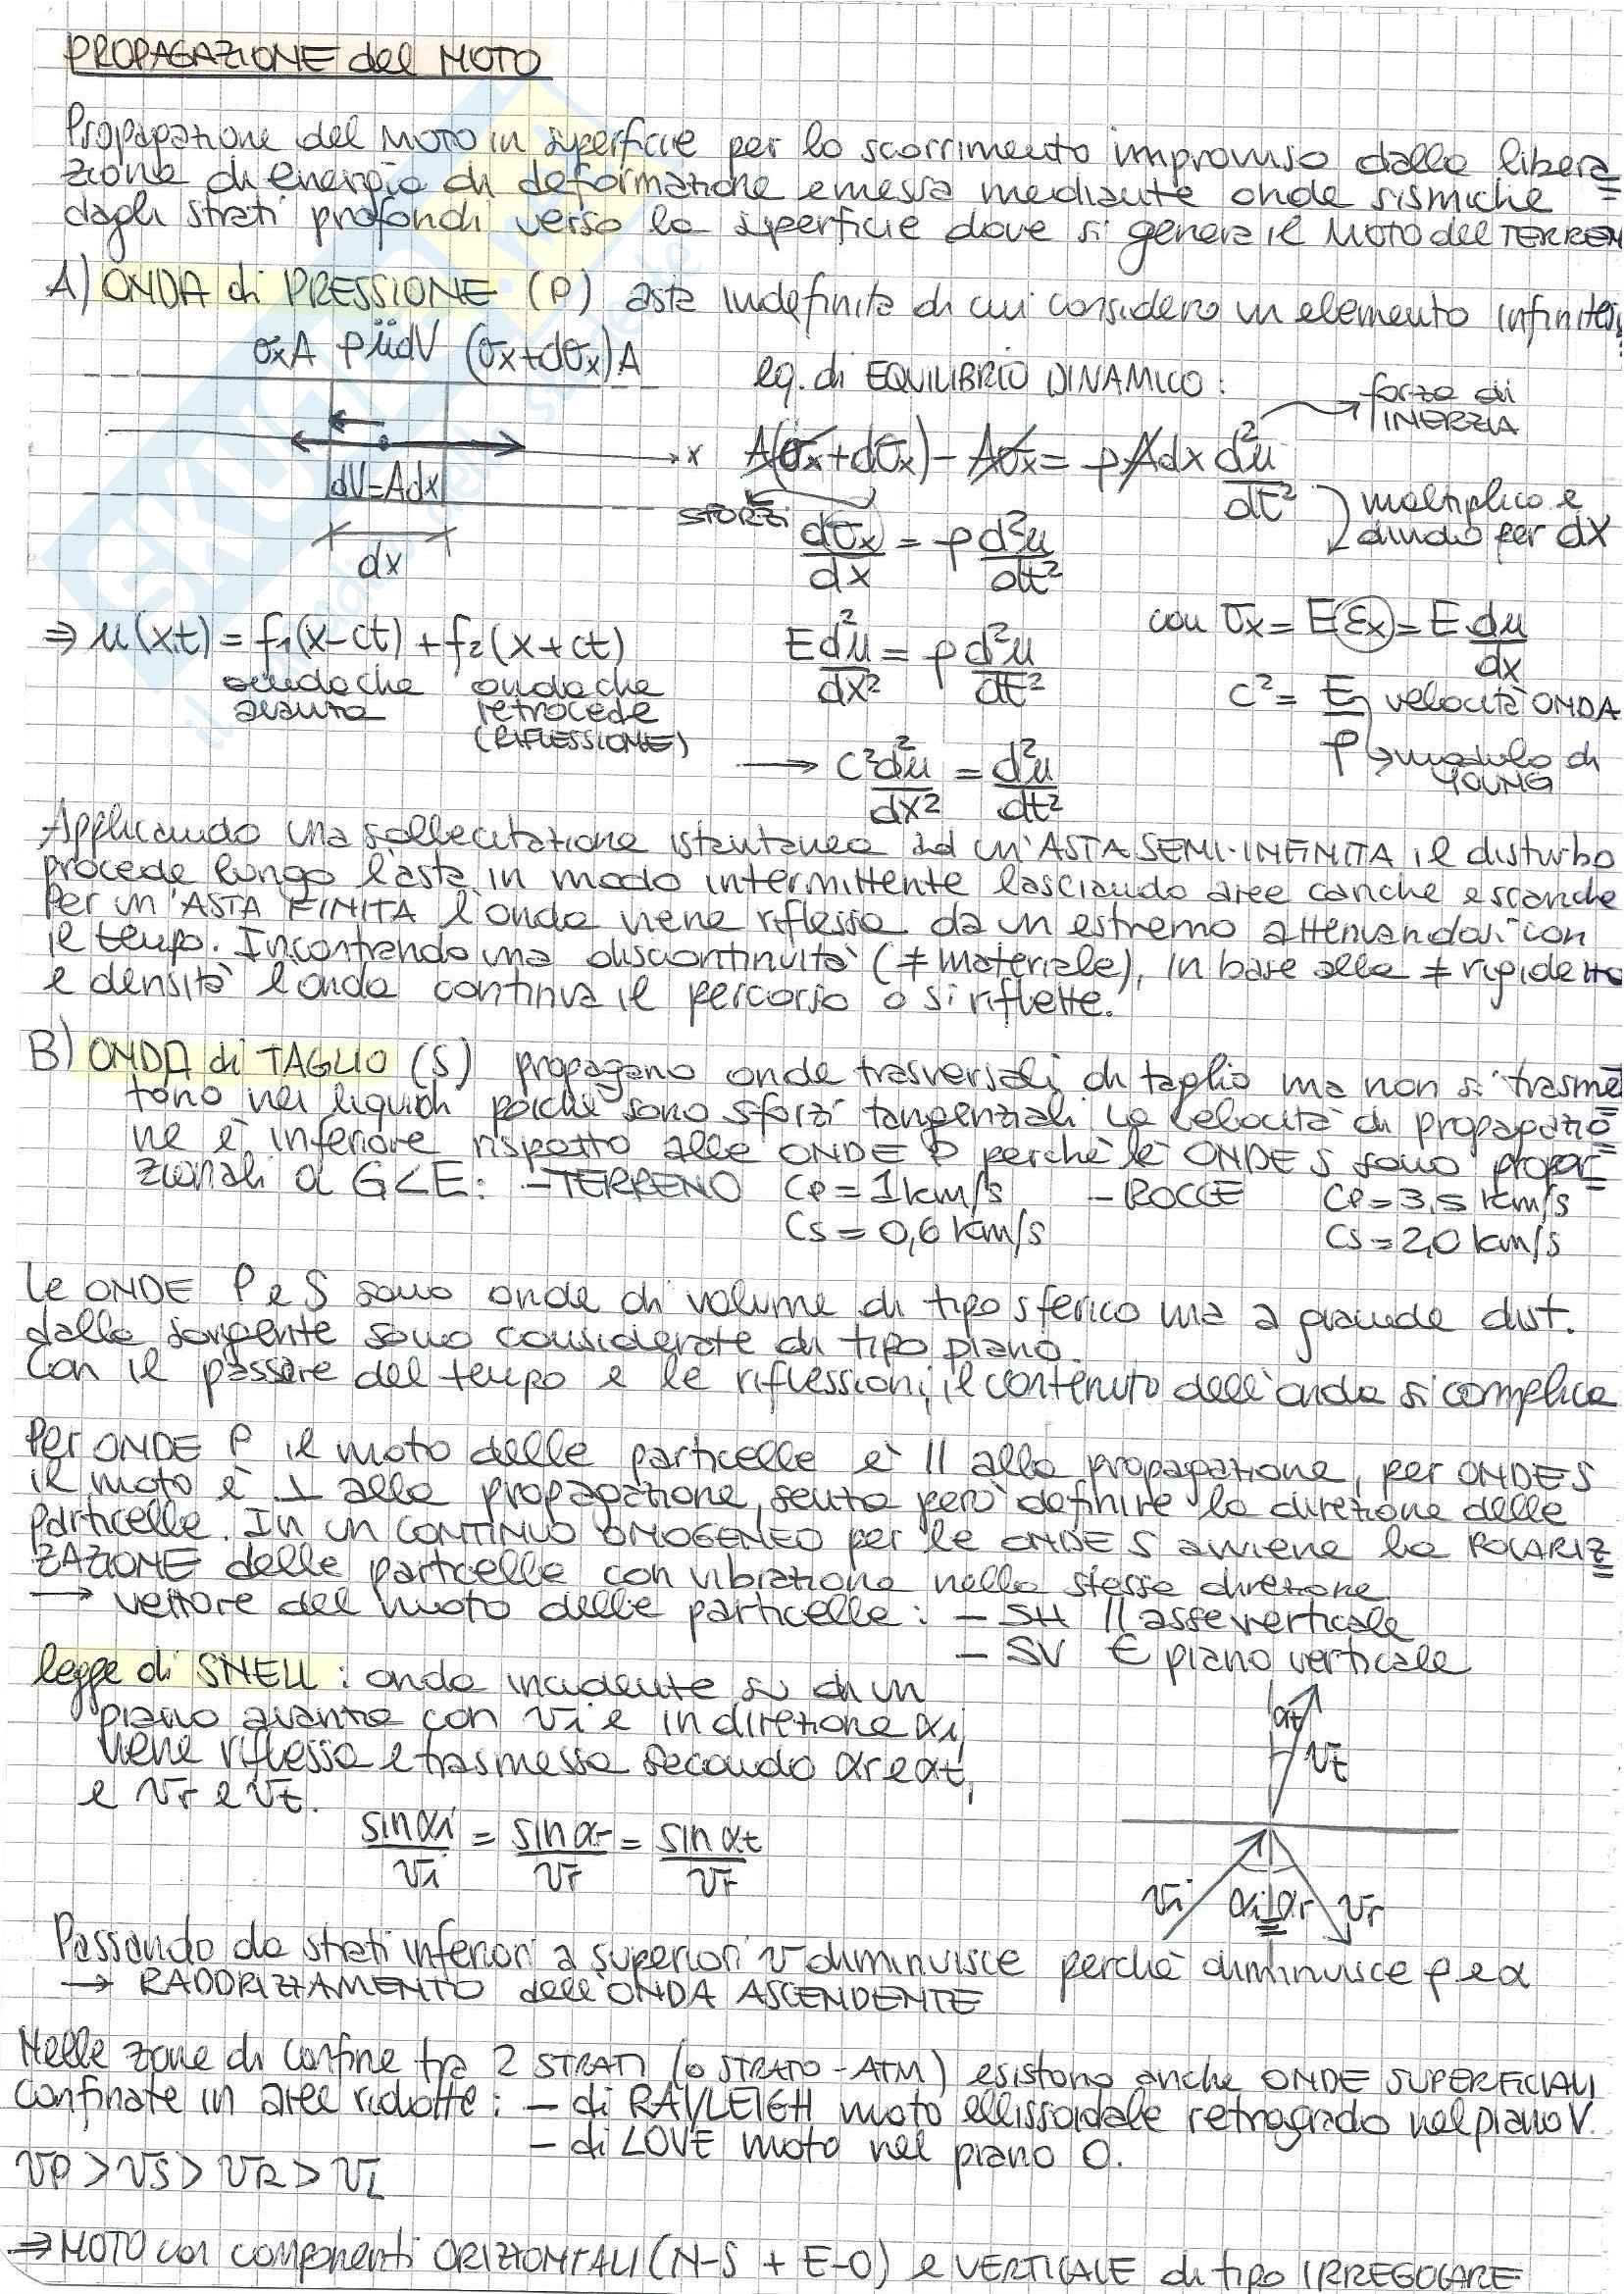 PROPAGAZIONE del MOTO
Propagazione del MOTO in superficie per lo scorrimento improvviso dalla libera
zione di energia di deformazione emessa mediante onde sismiche =
dagli strati profondi verso la superficie dove si genera il MOTO del TERREN
A) ONDA di PRESSIONE (P) asta indefinita di cui considero un elemento infinites
σxA ρüdV (σx+dσx)A
eq. di EQUILIBRIO DINAMICO:
forza di
INERZIA
x A(σx+dσx) - Aσx = ρAdx d²u/dt²
dV=Adx
SFORZI
moltiplico e
divido per dx
dx
dσx/dx = ρ d²u/dt²
con σx = E(εx) = E du/dx
⇒ u(x,t) = f1(x-ct) + f2(x+ct)
E d²u/dx² = ρ d²u/dt²
onda che onda che
avanza retrocede
(RIFLESSIONE)
c² = E/ρ velocità ONDA
modulo di
YOUNG
→ c² d²u/dx² = d²u/dt²
Applicando una sollecitazione istantanea ad un'ASTA SEMI-INFINITA il disturbo
procede lungo l'asta in modo intermittente lasciando aree cariche e scariche
Per un'ASTA FINITA l'onda viene riflessa da un estremo attenuandosi con
il tempo. Incontrando una discontinuità (≠ materiale), in base alla ≠ rigidezza
e densità l'onda continua il percorso o si riflette.
B) ONDA di TAGLIO (S) propagano onde trasversali di taglio ma non si trasmet
tono nei liquidi poichè sono sforzi tangenziali. La velocità di propagazio
ne è inferiore rispetto alle ONDE P perchè le ONDE S sono propor=
zionali a G<E: - TERRENO Cp = 1km/s - ROCCE Cp = 3,5 km/s
Cs = 0,6 km/s Cs = 2,0 km/s
Le ONDE P e S sono onde di volume di tipo sferico ma a grande dist.
dalla sorgente sono considerate di tipo piano.
Con il passare del tempo e le riflessioni, il contenuto dell'onda si complica
Per ONDE P il moto delle particelle è // alla propagazione, per ONDE S
il moto è ⊥ alla propagazione, senza però definire la direzione delle
particelle. In un CONTINUO OMOGENEO per le ONDE S avviene la POLARIZ=
ZAZIONE delle particelle con vibrazione nella stessa direzione
→ vettore del moto delle particelle: - SH // asse verticale
- SV ∈ piano verticale
legge di SNELL: onda incidente su di un
piano avanza con vi e in direzione αi,
viene riflessa e trasmessa secondo αr e αt,
e vr e vt.
αt
vt
sinαi/vi = sinαr/vr = sinαt/vt
vi αi αr vr
Passando da strati inferiori a superiori v diminuisce perchè diminuisce ρ e α
→ RADDRIZZAMENTO dell'ONDA ASCENDENTE
Nelle zone di confine tra 2 STRATI (o STRATO-ATM) esistono anche ONDE SUPERFICIALI
confinate in aree ridotte: - di RAYLEIGH moto ellissoidale retrogrado nel piano V.
- di LOVE moto nel piano O.
vP > vS > vR > vL
⇒ MOTO con componenti ORIZZONTALI (N-S + E-O) e VERTICALE di tipo IRREGOLARE